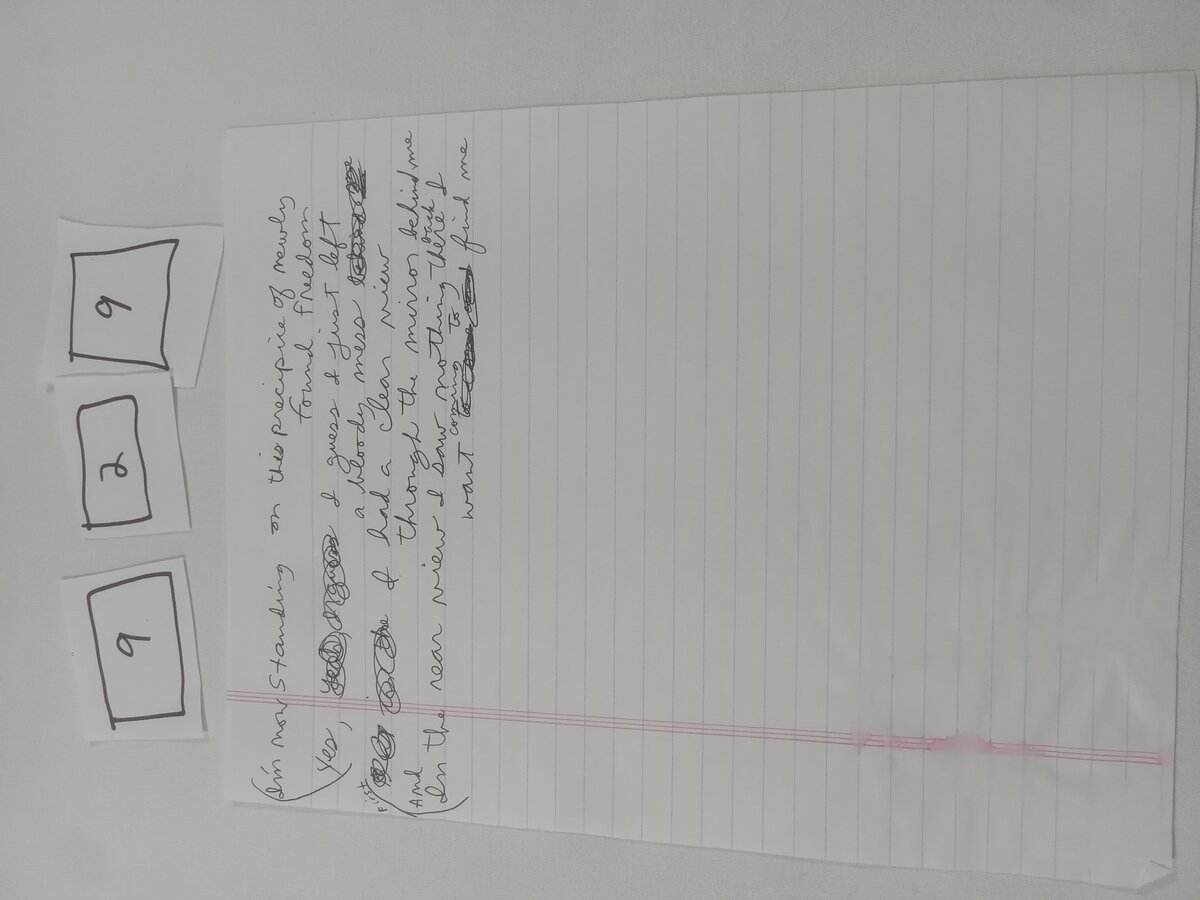 9 2 9
(I'm now standing on this precipice of newly
found freedom
(Yes, I guess I just left
a bloody mess
First
( I had a clear view
through the mirror behind me
(And
In the rear view I saw nothing back there I
want coming to find me